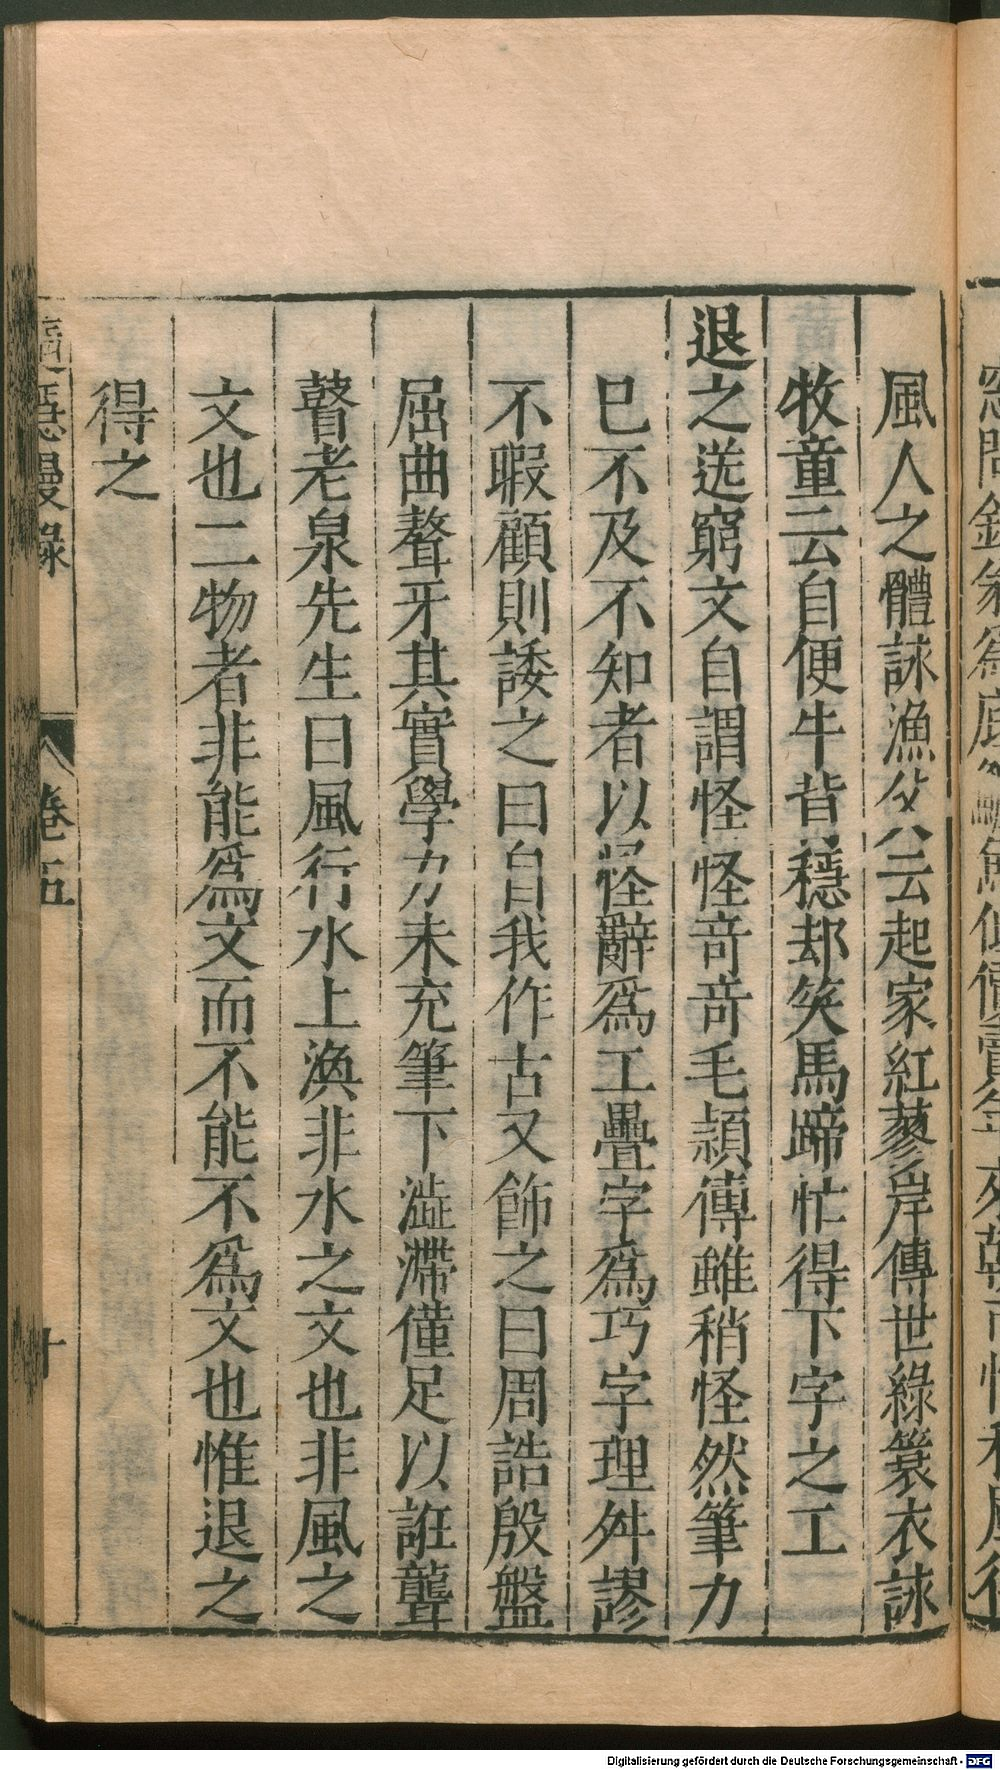 風人之體詠漁父云起家紅蓼岸傳世綠簑衣詠
牧童云自便牛背穩却笑馬蹄忙得下字之工
退之送窮文自謂怪怪竒竒毛潁傳雖稍怪然筆力
已不及不知者以怪辭爲工疊字爲巧字理舛謬
不暇顧則諉之曰自我作古又飾之曰周誥殷盤
屈曲聱牙其實學力未充筆下澁滯僅足以誑聾
瞽老泉先生曰風行水上渙非水之文也非風之
文也二物者非能爲文而不能不爲文也惟退之
得之
卷五
十
Digitalisierung gefördert durch die Deutsche Forschungsgemeinschaft - DFG